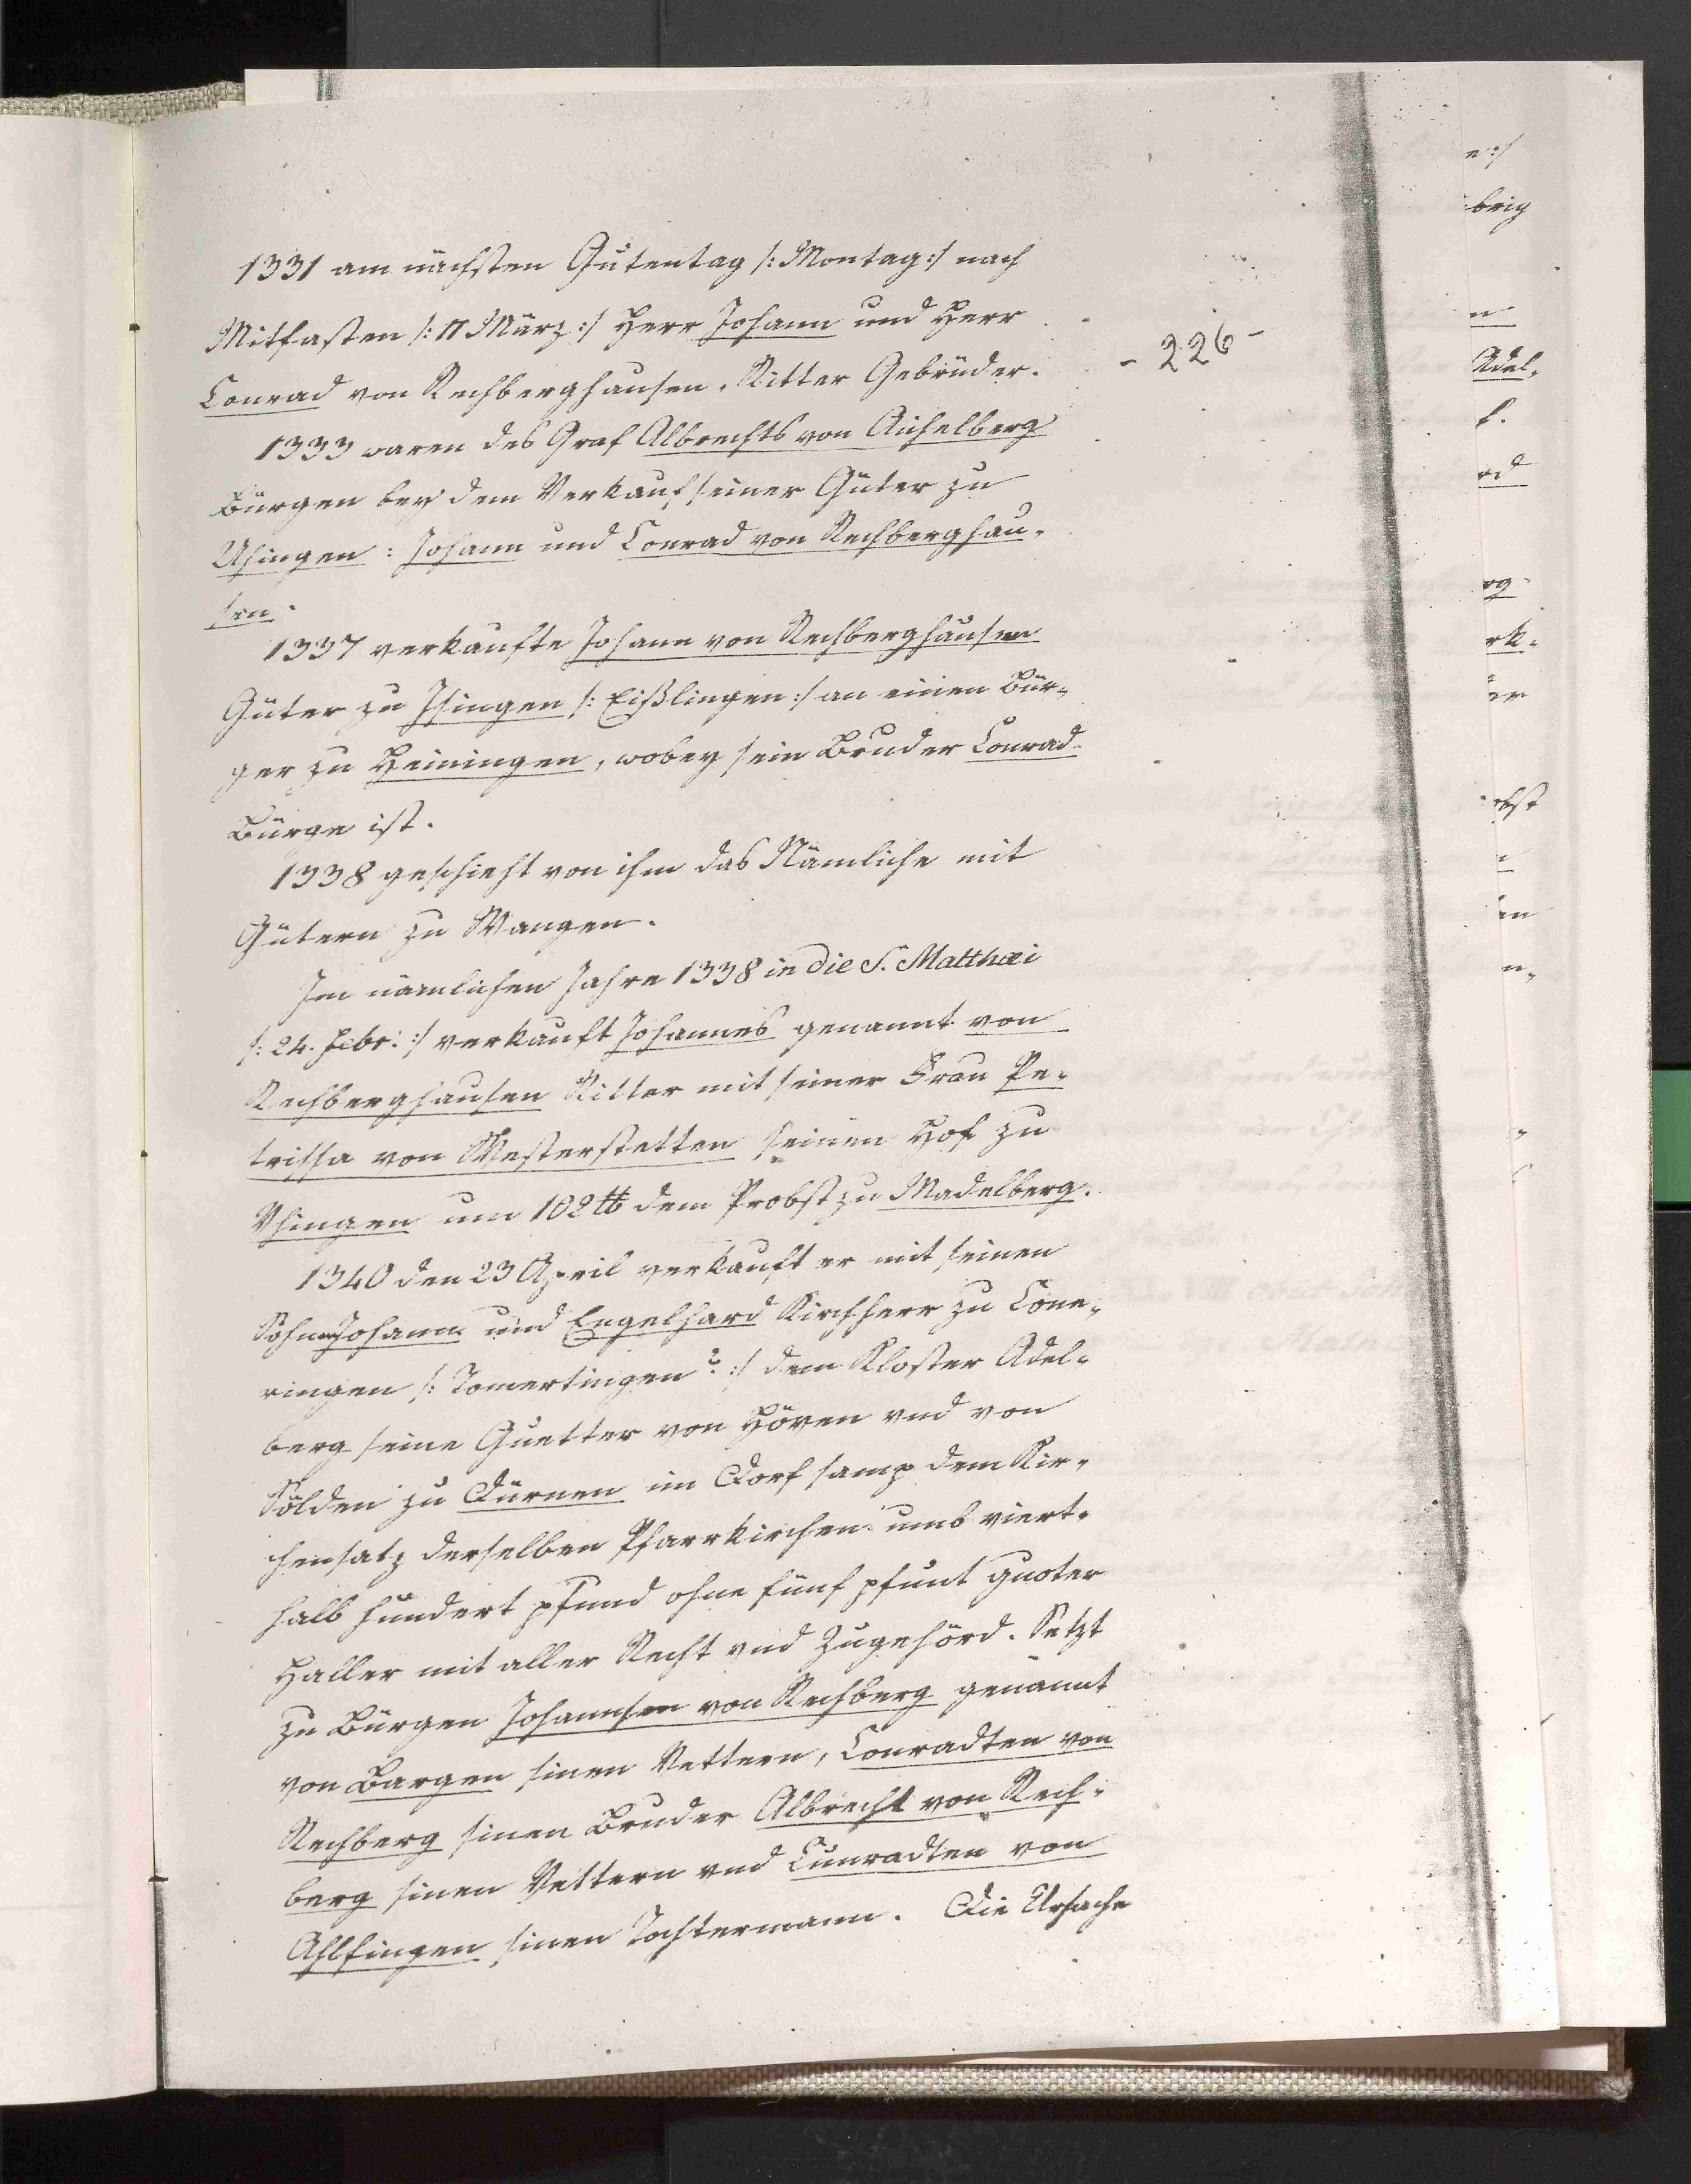 1331 am nächsten Gutentag /: Montag :/ nach
Mitfasten /: 11 März :/ Herr Johann und Herr
Conrad von Rechberghausen, Ritter Gebrüder.
- 226 -
1333 waren des Graf Albrechts von Aichelberg
Bürgen bey dem Verkauf seiner Güter zu
Usingen : Johann und Conrad von Rechberghau-
sen.
1337 verkaufte Johann von Rechberghausen
Güter zu Isingen /: Eißlingen :/ an einen Bür-
ger zu Heiningen, wobey sein Bruder Conrad
Bürge ist.
1338 geschieht von ihm das Nämliche mit
Gütern zu Wangen.
Im nämlichen Jahre 1338 in die S. Matthæi
/: 24. Febr: :/ verkauft Johannes genannt von
Rechberghausen Ritter mit seiner Frau Pe-
trissa von Westerstetten seinen Hof zu
Ysingen um 102 ℔ dem Probst zu Madelberg.
1340 den 23 April verkauft er mit seinen
Söhn Johann und Engelhard Kirchherr zu Tone-
ringen /: Tomertingen? :/ dem Kloster Adel-
berg seine Guetter von Höven vnd von
Sölden zu Dürnen im Dorf samp dem Kir-
chensatz derselben Pfarrkirchen umb viert-
halb hundert pfund ohne fünf pfunt guoter
Haller mit aller Recht vnd Zugehörd. Setzt
zu Bürgen Johannsen von Rechberg genannt
von Bargen sinen Vettern, Conradten von
Rechberg sinen Bruder Albrecht von Rech-
berg sinen Vettern vnd Cunradten von
Ahlfingen sinen Tochtermann. Die Ursache
e :/
brig
n
Adel-
rd
rk-
er
obst
en
n-